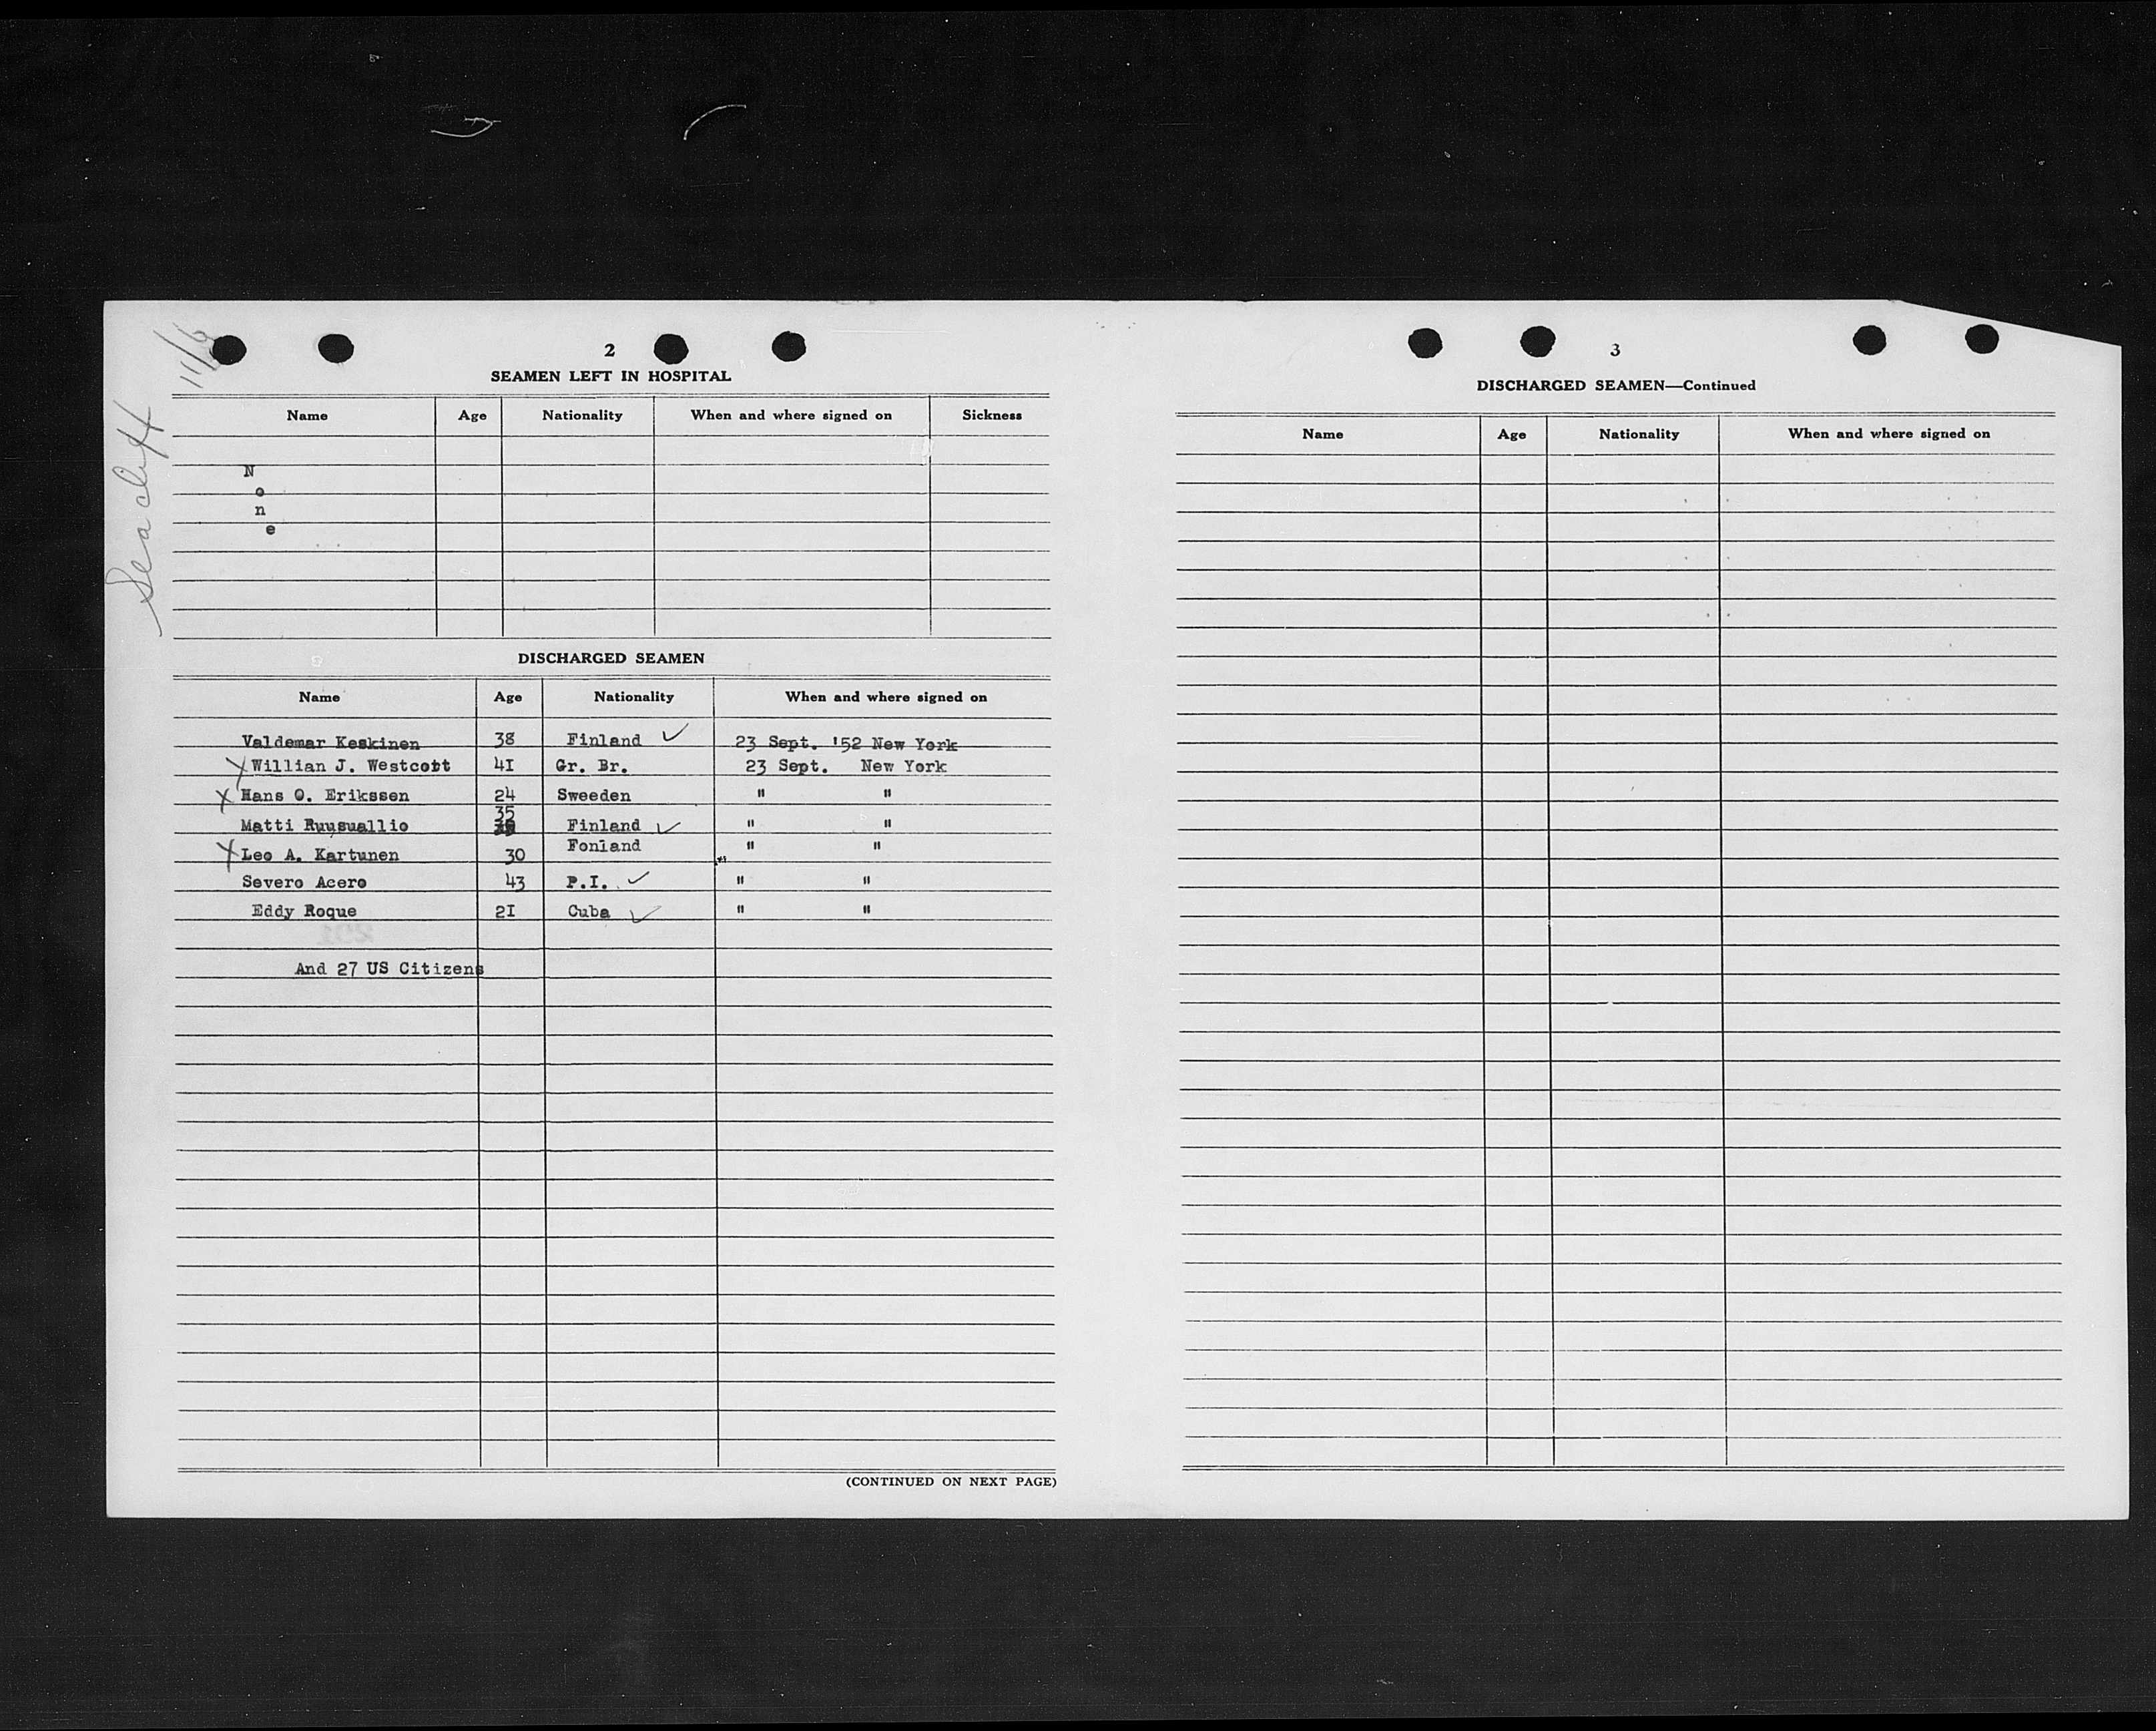 11/6
Sea cliff
2
SEAMEN LEFT IN HOSPITAL
Name Age Nationality When and where signed on Sickness
N
o
n
e
DISCHARGED SEAMEN
Name Age Nationality When and where signed on
Valdemar Keskinen 38 Finland ✓ 23 Sept. '52 New York
X Willian J. Westcott 4I Gr. Br. 23 Sept. New York
X Hans O. Erikssen 24 Sweeden " "
Matti Ruusuallio 35 Finland ✓ " "
X Leo A. Kartunen 30 Fonland " "
Severo Acero 43 P.I. ✓ " "
Eddy Roque 2I Cuba ✓ " "
And 27 US Citizens
(CONTINUED ON NEXT PAGE)
3
DISCHARGED SEAMEN—Continued
Name Age Nationality When and where signed on